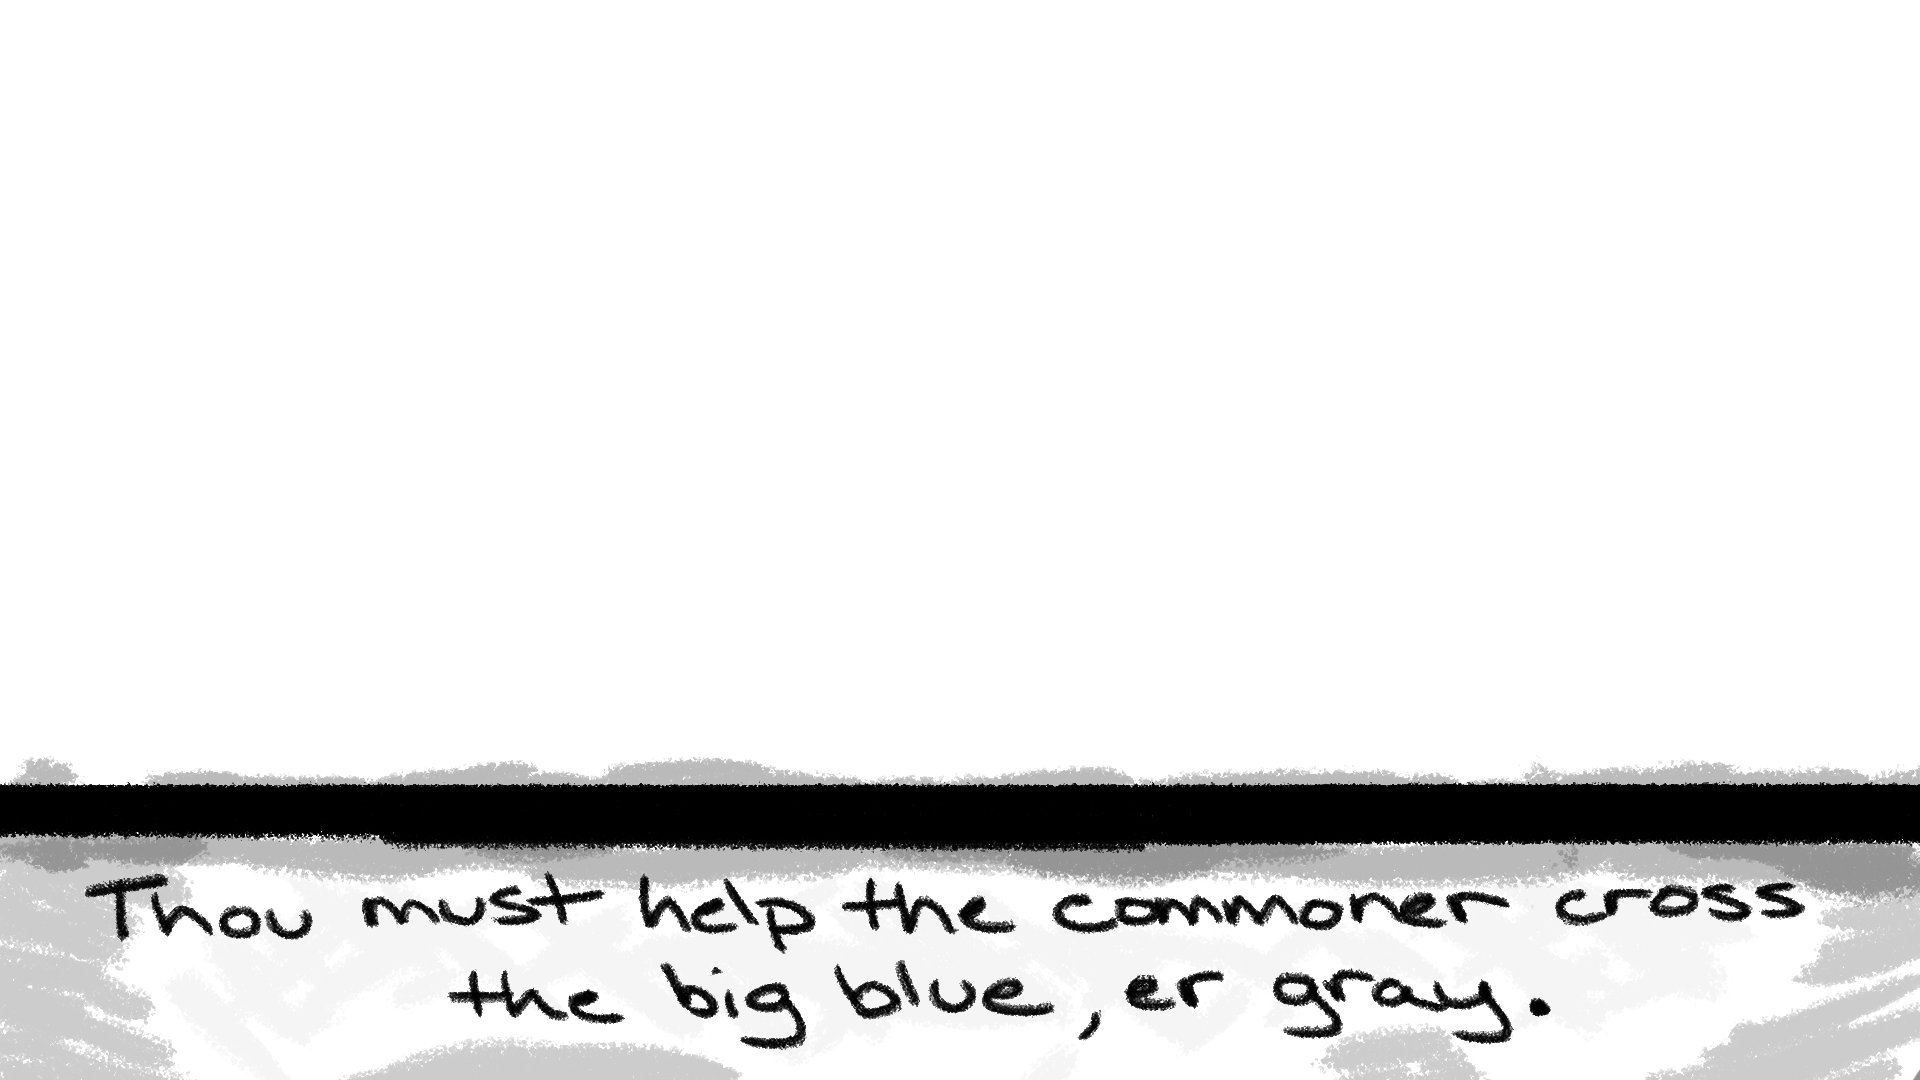 Thou must help the commoner cross
the big blue, er gray.